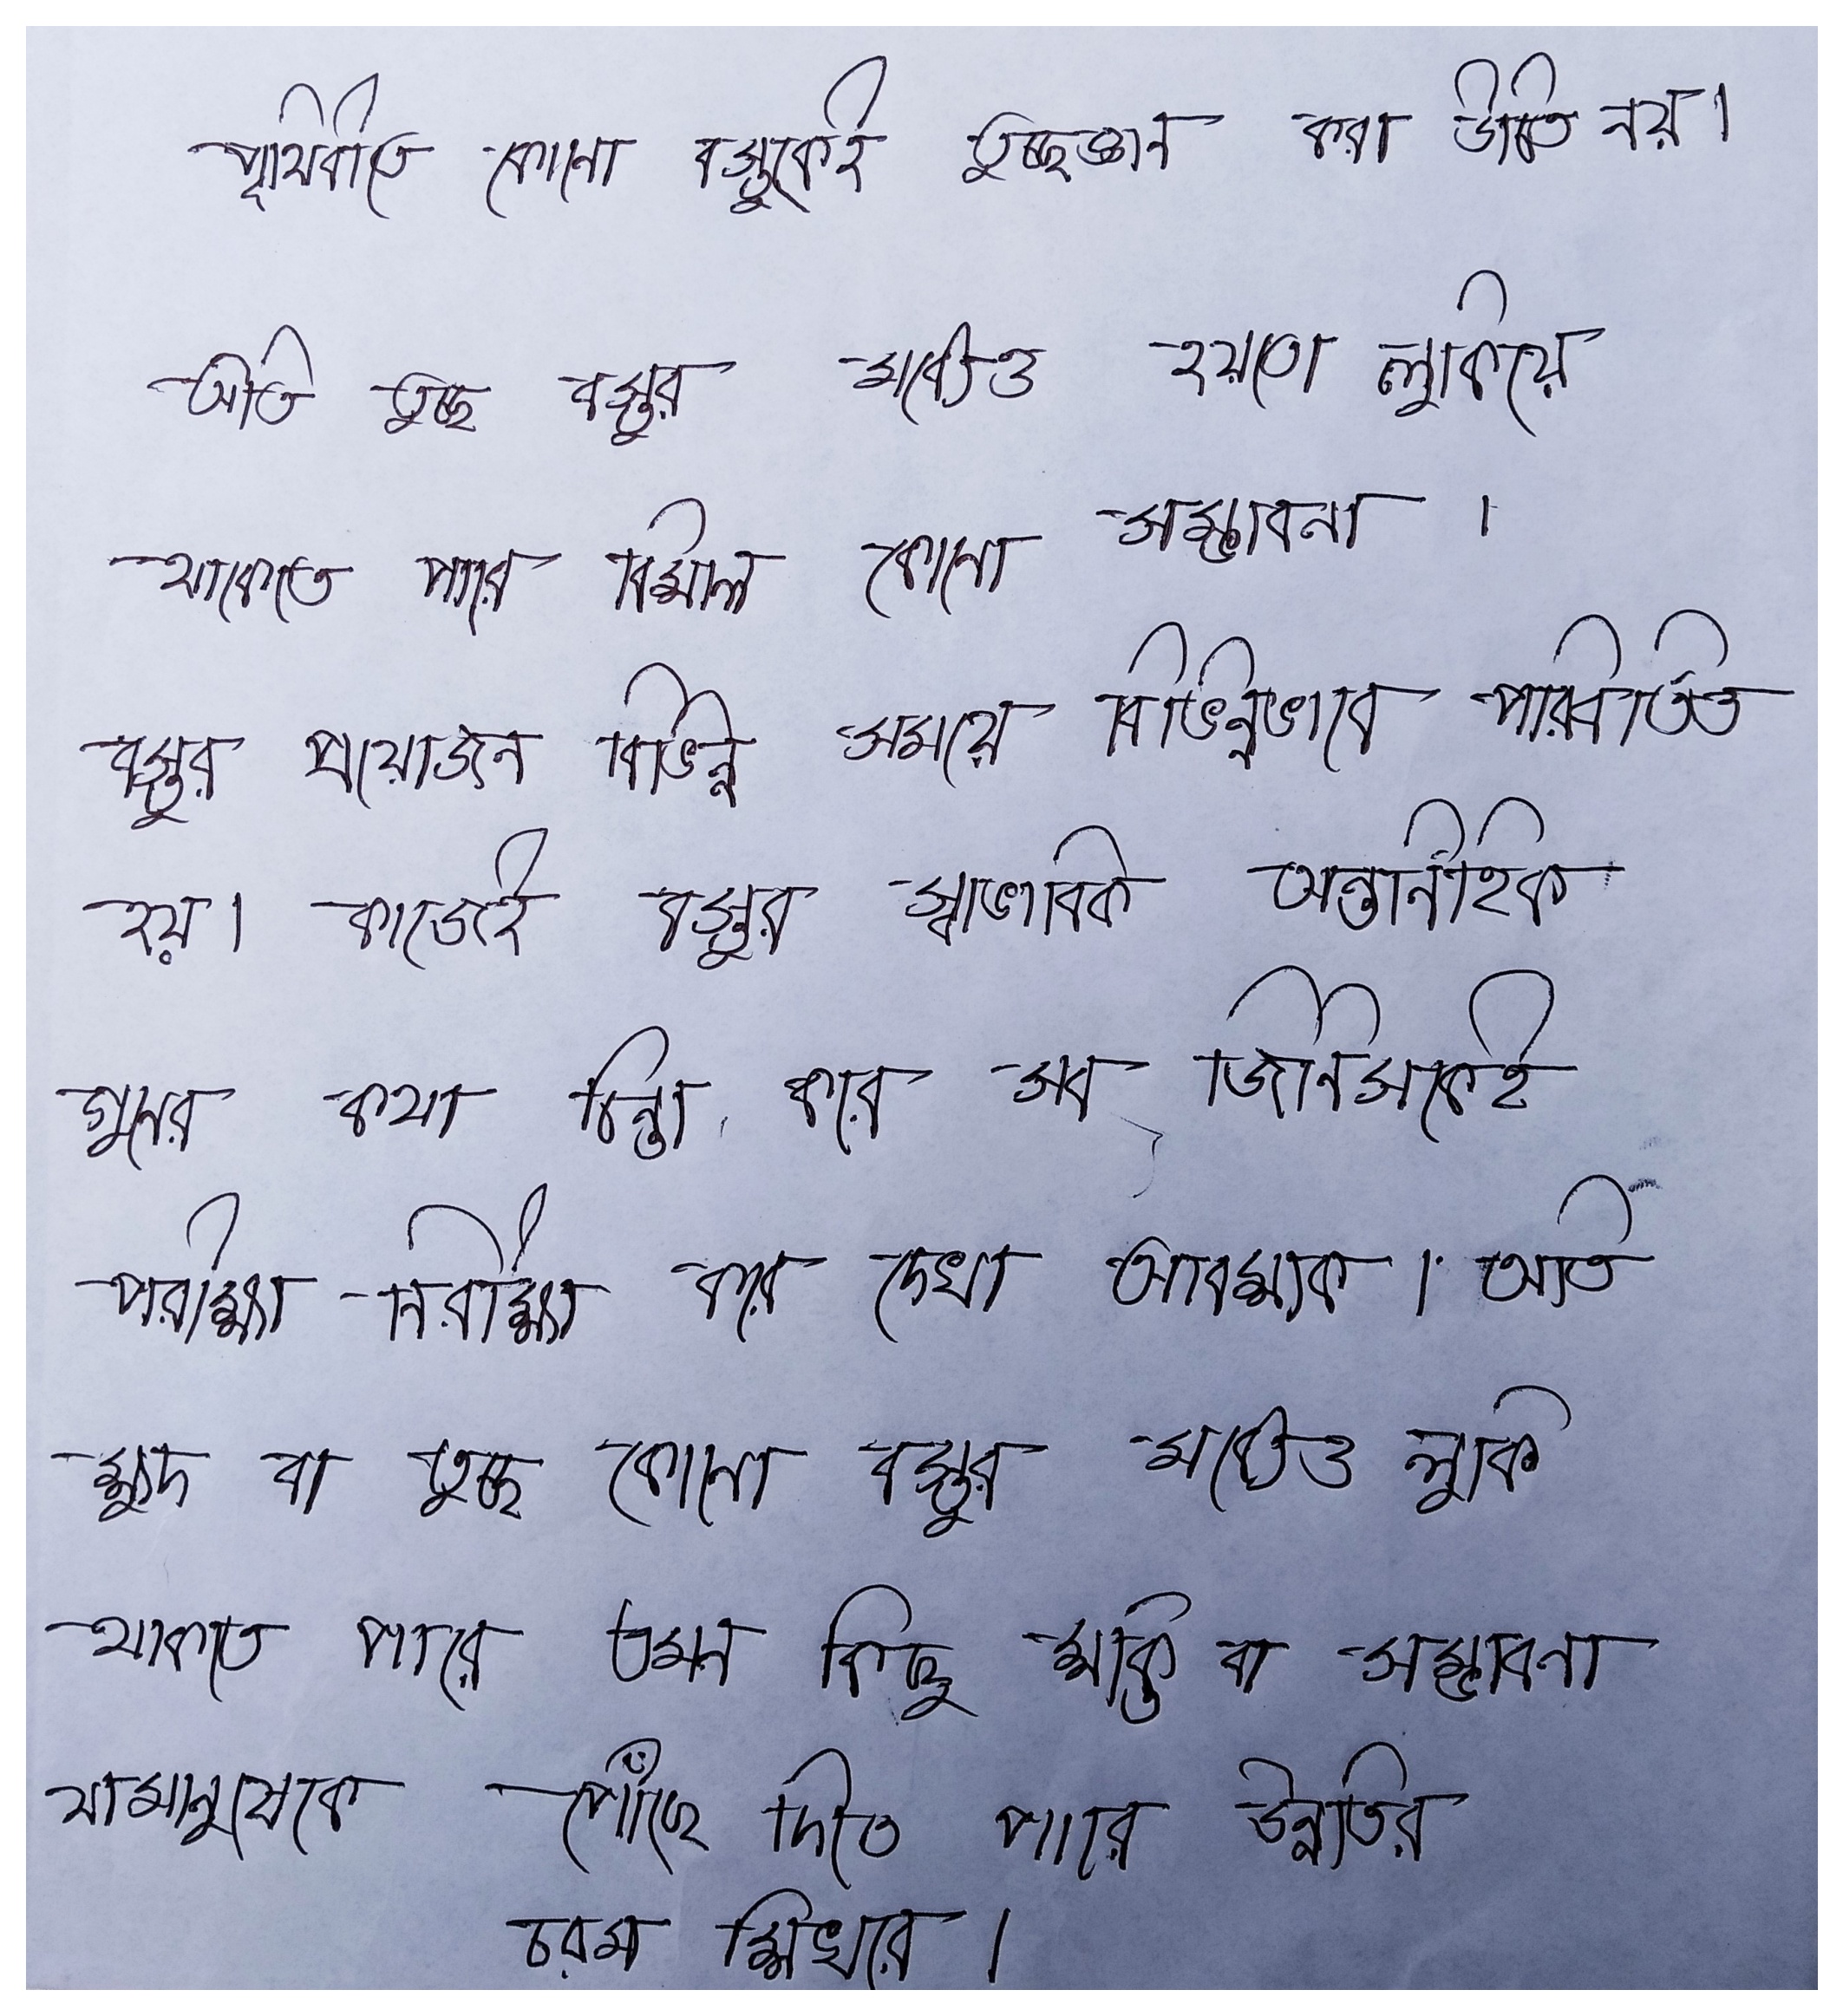 পৃথিবীতে কোনো বস্তুকেই তুচ্ছজ্ঞান করা উচিত নয়।
অতি তুচ্ছ বস্তুর মধ্যেও হয়তো লুকিয়ে
থাকতে পারে বিশাল কোনো সম্ভাবনা ।
বস্তুর প্রয়োজন বিভিন্ন সময়ে বিভিন্নভাবে পরিবর্তিত
হয়। কাজেই বস্তুর স্বাভাবিক অন্তর্নিহিক
গুনের কথা চিন্তা করে সব জিনিসকেই
পরীক্ষা-নিরীক্ষা করে দেখা আবশ্যক। অতি
ক্ষুদ বা তুচ্ছ কোনো বস্তুর মধ্যেও লুকি
থাকতে পারে এমন কিছু শক্তি বা সম্ভাবনা
যা মানুষেকে পৌঁছে দিতে পারে উন্নতির
চরম শিখরে।